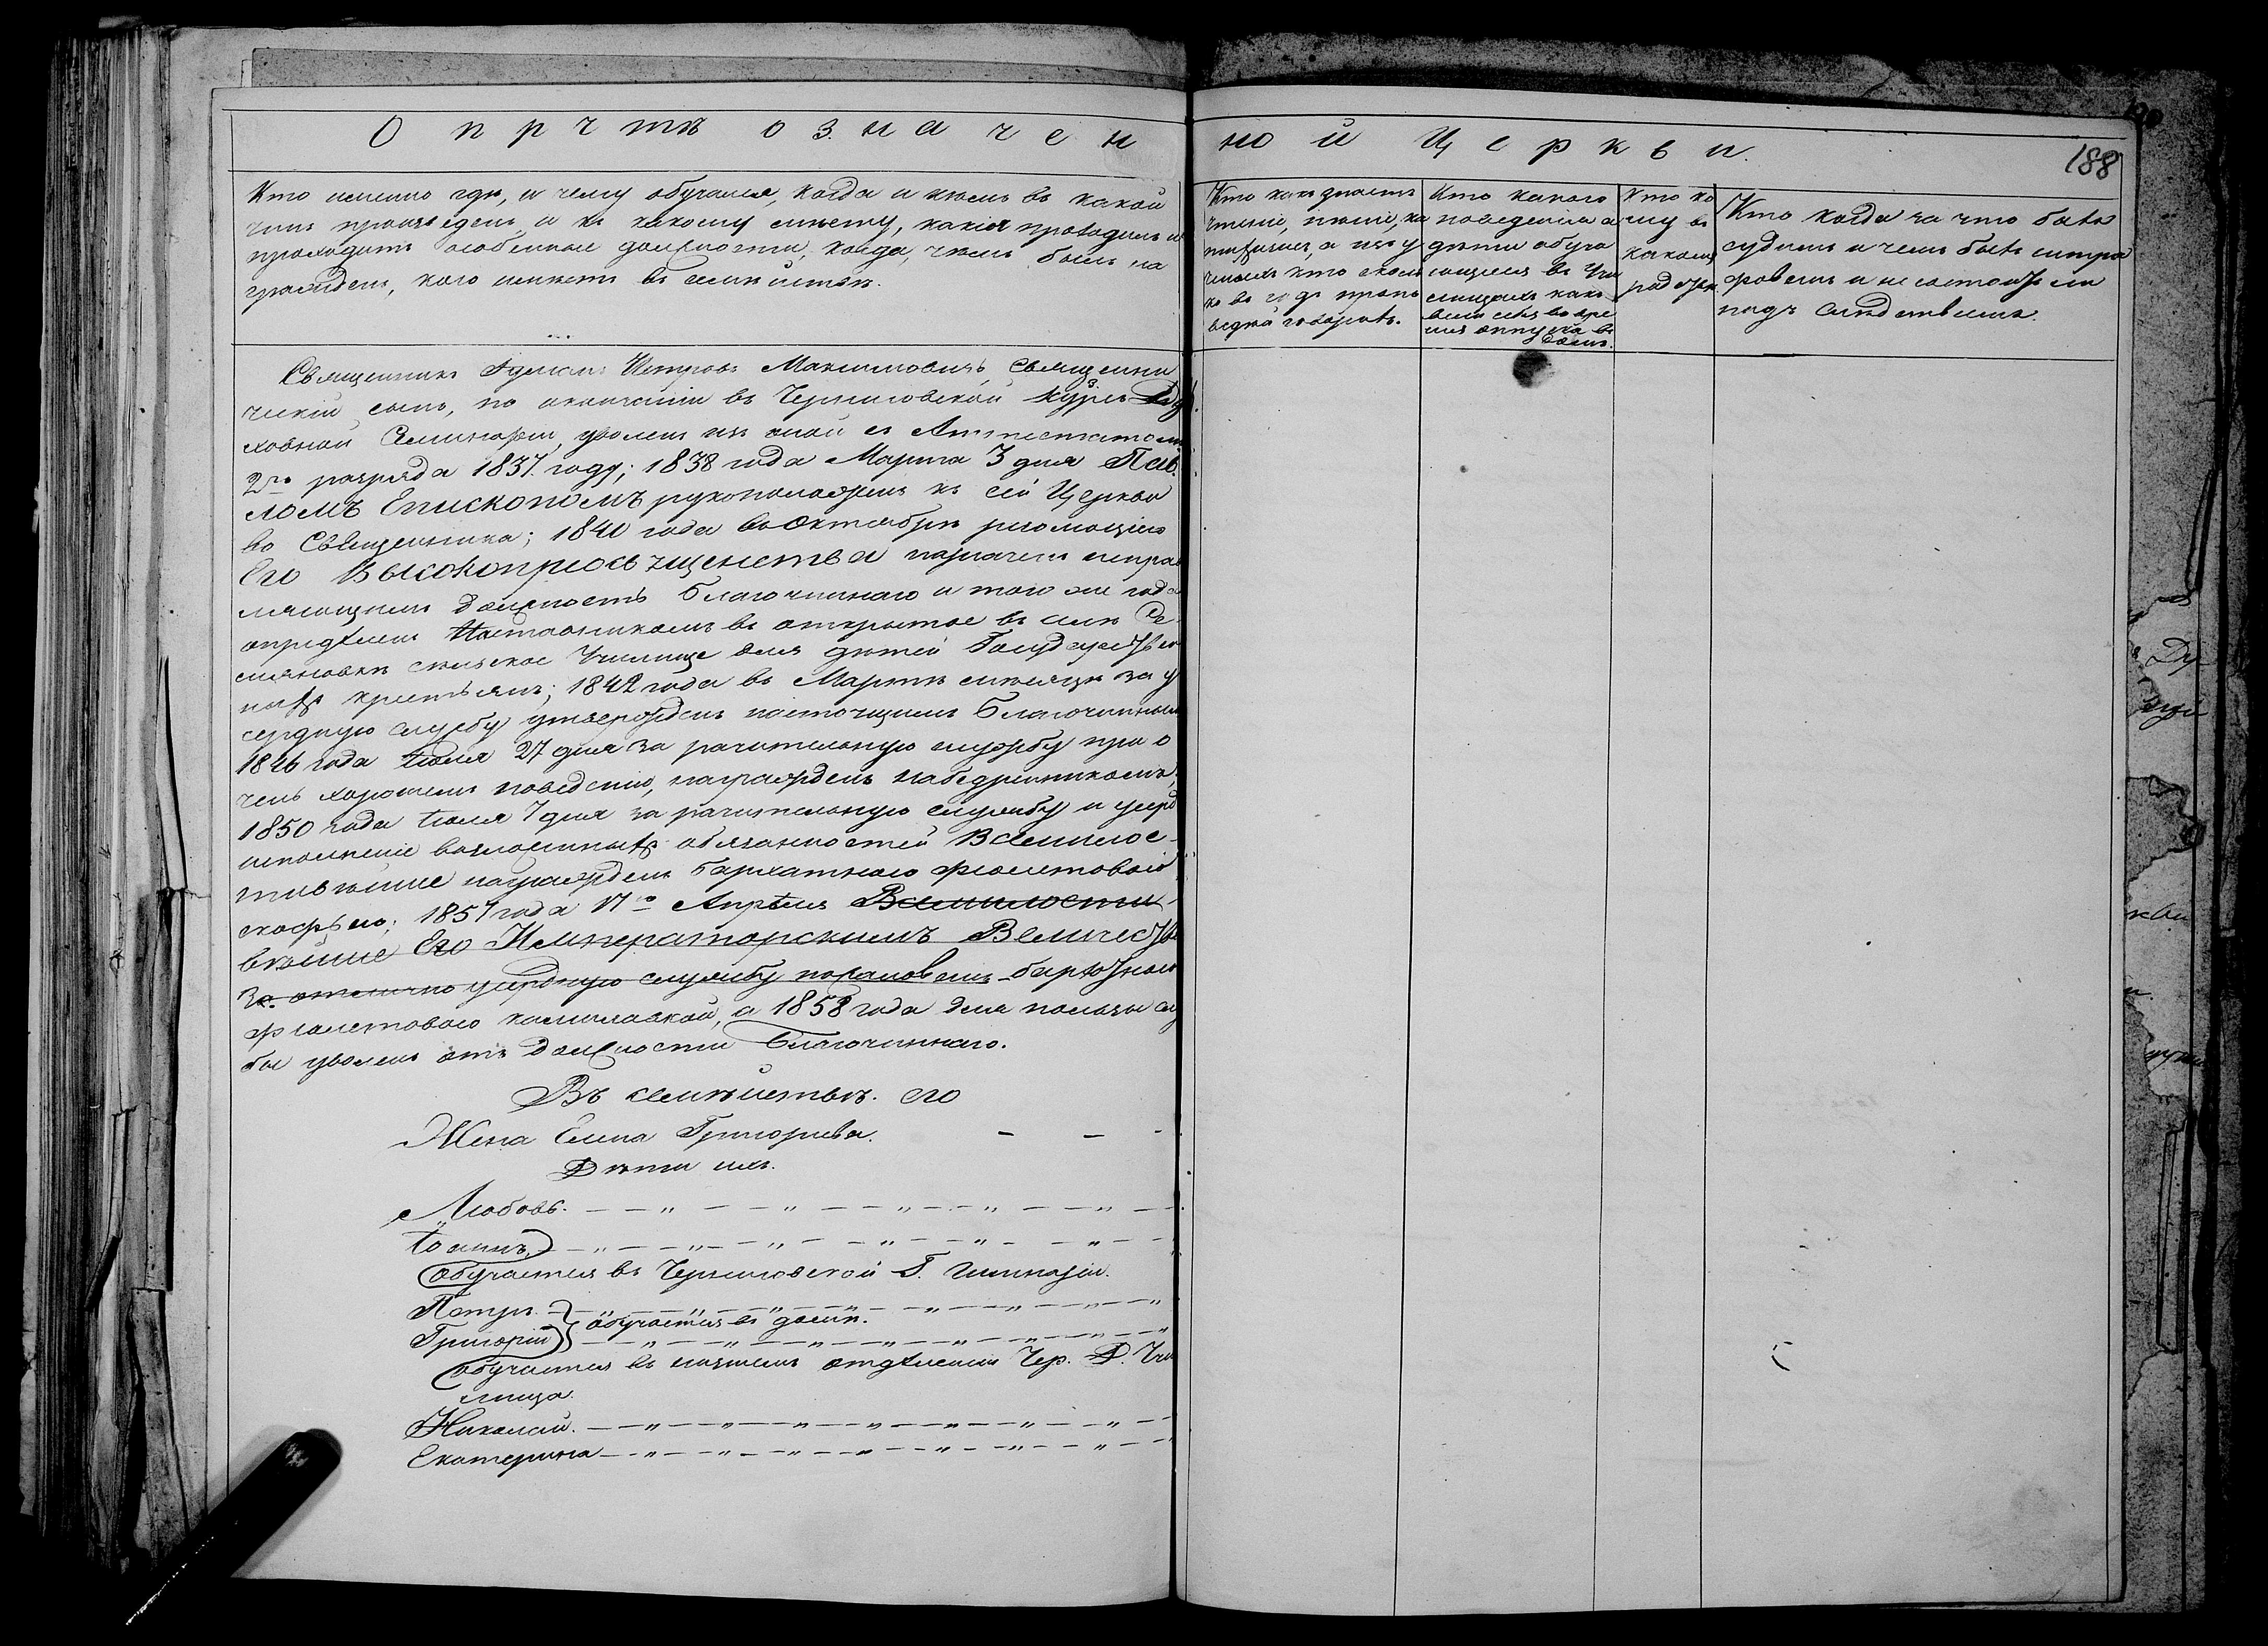 О причтѣ означен
ной Церкви.
188
Кто именно гдѣ, и чему обучался, когда и кѣмъ въ какой
чинъ произведенъ, и къ какому мѣсту, какія проходилъ и
проходитъ особенныя должности, когда, чѣмъ былъ на
гражденъ, кого имѣетъ въ семействѣ.
Кто какъ знаетъ
чтеніе, пѣніе, ка
тихизисъ, а изъ у
ченыхъ кто сколь
ко въ годъ пропо
ведей говоритъ.
Кто какого
поведенія а
дѣти обуча
ющіеся въ Учи
лищахъ како
вели себя во вре
мя отпуска въ
домъ.
Кто ко
му въ
какомъ
родствѣ
Кто когда за что былъ
судимъ и чемъ былъ штра
фованъ и не состоитъ ли
подъ слѣдствіемъ.
Священникъ Петровъ Максимовичъ, священни
ческій сынъ, по окончаніи въ Черниговской курса Ду
ховной Семинаріи, уволенъ изъ оной съ Аттестатомъ
2го разряда 1837 году; 1838 года Марта 3 дня Пав
ломъ Епископомъ рукоположенъ къ сей Церкви
во Священника; 1840 года въ Октябрѣ резолюціею
Его Высокопреосвященства назначенъ исправ
ляющимъ должность благочиннаго и того же года
опредѣленъ Наставникомъ въ открытое въ селѣ Се
мяновкѣ сельское Училище для дѣтей Государствен
ныхъ крестьянъ; 1842 года въ Мартѣ мѣсяцѣ за у
сердную службу утвержденъ настоящимъ Благочиннымъ
1846 года Іюля 27 дня за рачительную службу при о
чень хорошемъ поведеніи, награжденъ набедренникомъ;
1850 года Іюля 7 дня за рачительную службу и усерд
исполненіе возложенныхъ обязанностей Всемилос
тивѣйше награжденъ бархатною фіолетовою
скофьею; 1857 года 17го Апрѣля Всемилости
вѣйше Его Императорскимъ Величест
за отлично усердную службу пожалованъ бархатною
фіолетовою камилавкой, а 1858 года для пользы слу
бы уволенъ отъ должности Благочиннаго.
Въ семействѣ его
Жена Елена Григорьева.
Дѣти ихъ.
Любовь.
Іоаннъ,
обучается въ Черниговской Г. Гимназіи.
Петръ. обучается въ домѣ.
Григорій
обучается въ низшемъ отдѣленіи Чер. Д. Учи
лища.
Николай.
Екатерина